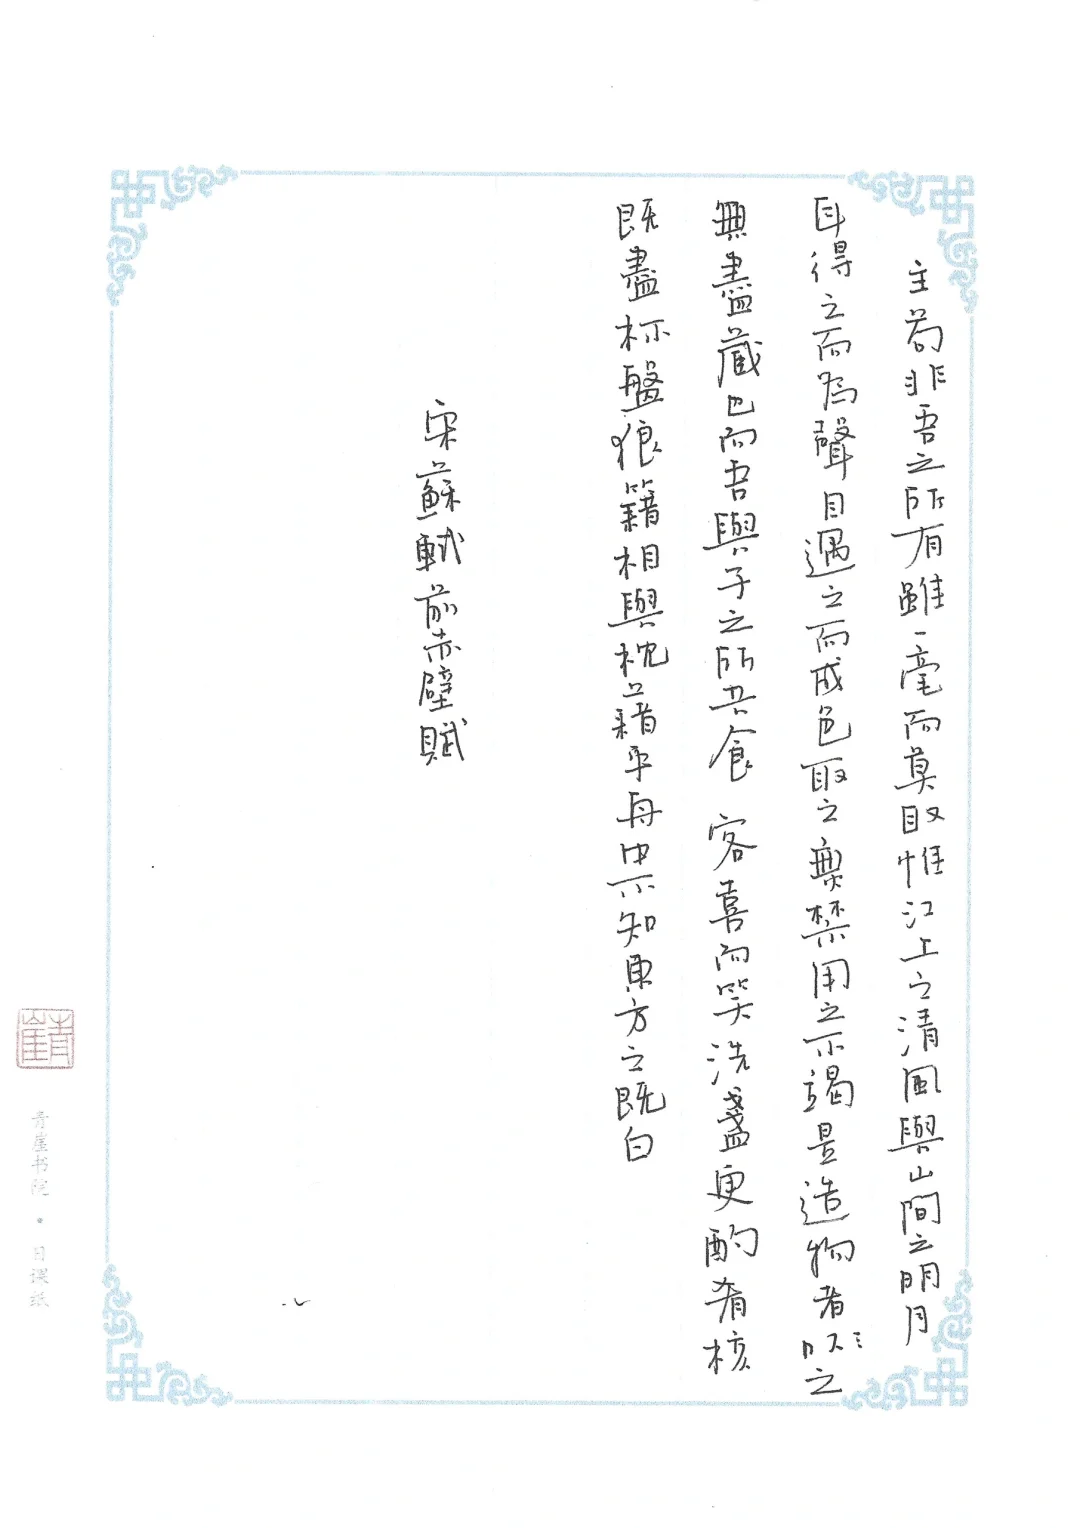 主苟非吾之所有雖一毫而莫取惟江上之清風與山間之明月
耳得之而為聲目遇之而成色取之無禁用之不竭是造物者之
無盡藏也而吾與子之所共食 客喜而笑洗盞更酌肴核
既盡杯盤狼籍相與枕藉乎舟中不知東方之既白
宋蘇軾前赤壁賦
青崖
青崖书院 · 日课纸